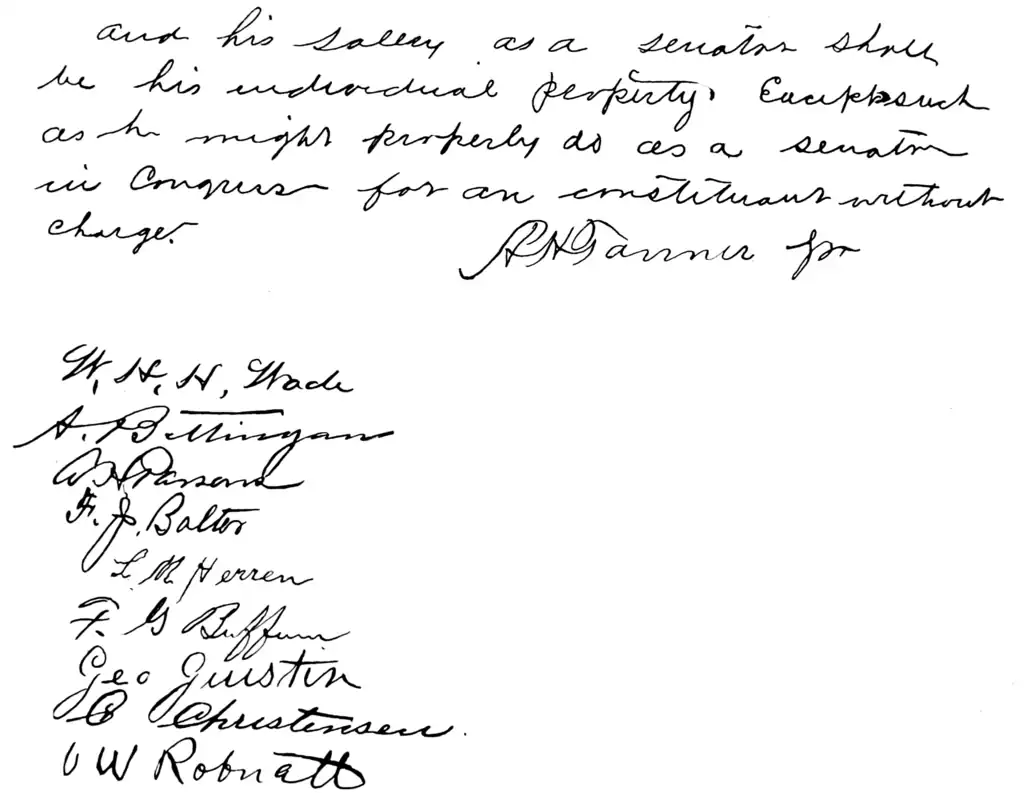 and his sallery as a senator shall
be his individual property. Except such
as he might properly do as a senator
in Congress for an constituant without
charge.
A H Tanner Jr
W. H. H. Wade
A. Bettingen
A H Parsons
F. J. Balter
L M Herren
F. G Buffum
Geo Juistin
C Christensen.
O W Robnett